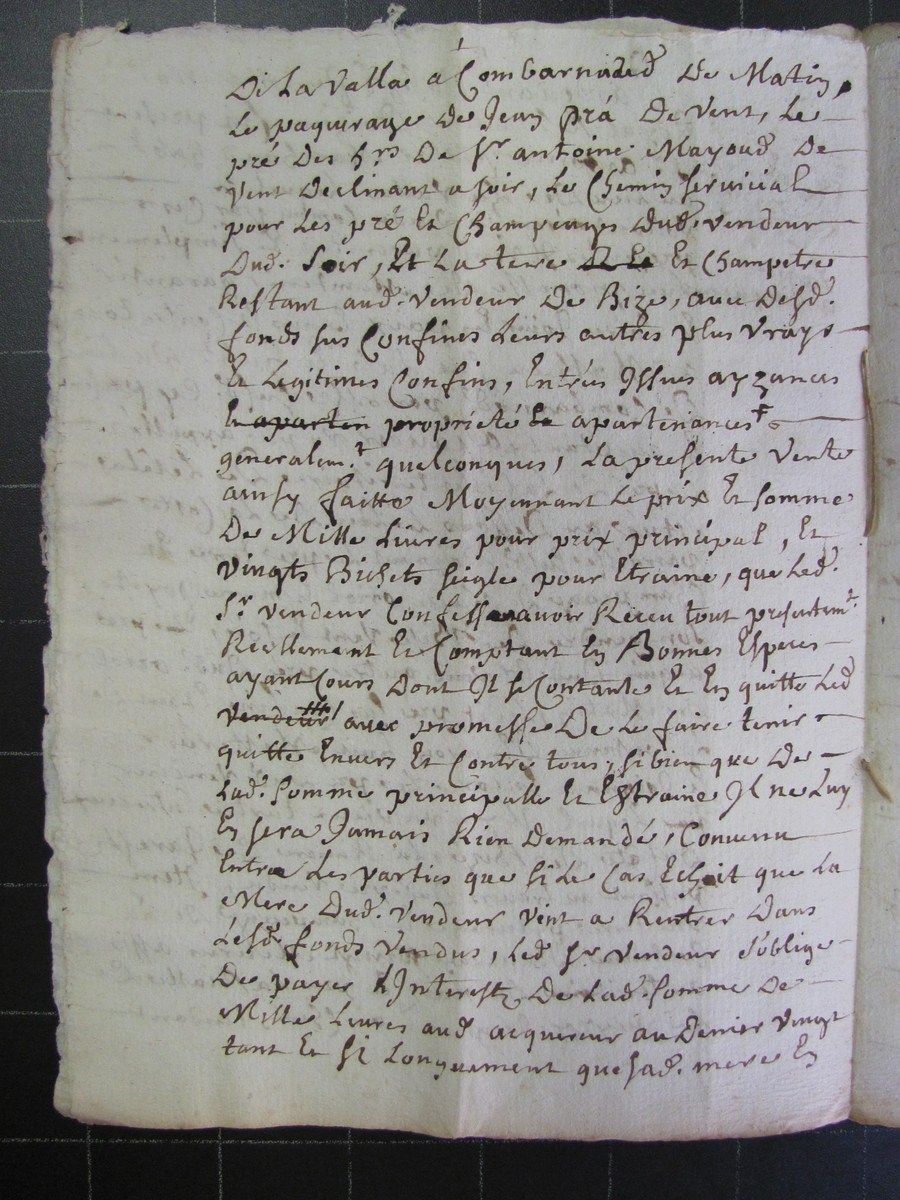 De La Valla a Combarnaded De Matin,
Le paquerage de Jean prá De vent, Le
pré Des hrs De Sr. antoine Mayoud De
Vent Declinant a soir, Le Chemin servicial
pour Les pré Et Champeages Dud. vendeur
Dud. Soir, Et La terre Et Champetre
Restant aud. Vendeur De Bize, avec Desd.
fonds sus Confines Leurs autres plus vrays
Et Legitimes Confins, Entrées Issues ayzances
Et aparten proprieté Et apartenances
generalemt. quelconques, La presente Vente
ainsy faitte Moyennant Le prix Et somme
De Mille Livres pour prix principal, Et
Vingts Bichets seigle pour Etraine, que Led.
Sr. vendeur Confesse avoir Receu tout presentemt.
Reellement Et Comptant En Bonnes Especes
ayant Cours Dont Il se Contante Et En quitte Led
Vendeur avec promesse De Le faire tenir
quitte Envers Et Contre tous, si bien que De
Lad. Somme principalle Et Estraine Il ne Luy
En sera Jamais Rien Demandé, Convenu
Entre Les parties que si Le Cas Echoit que La
Mere Dud. Vendeur vint a Rentrer Dans
Lesd. fonds Vendus, Led. Sr. Vendeur s'oblige
De payer L'Interest De Lad. Somme De
Mille Livres aud acquereur au Denier vingt
tant Et si Longuement que sad. mere En